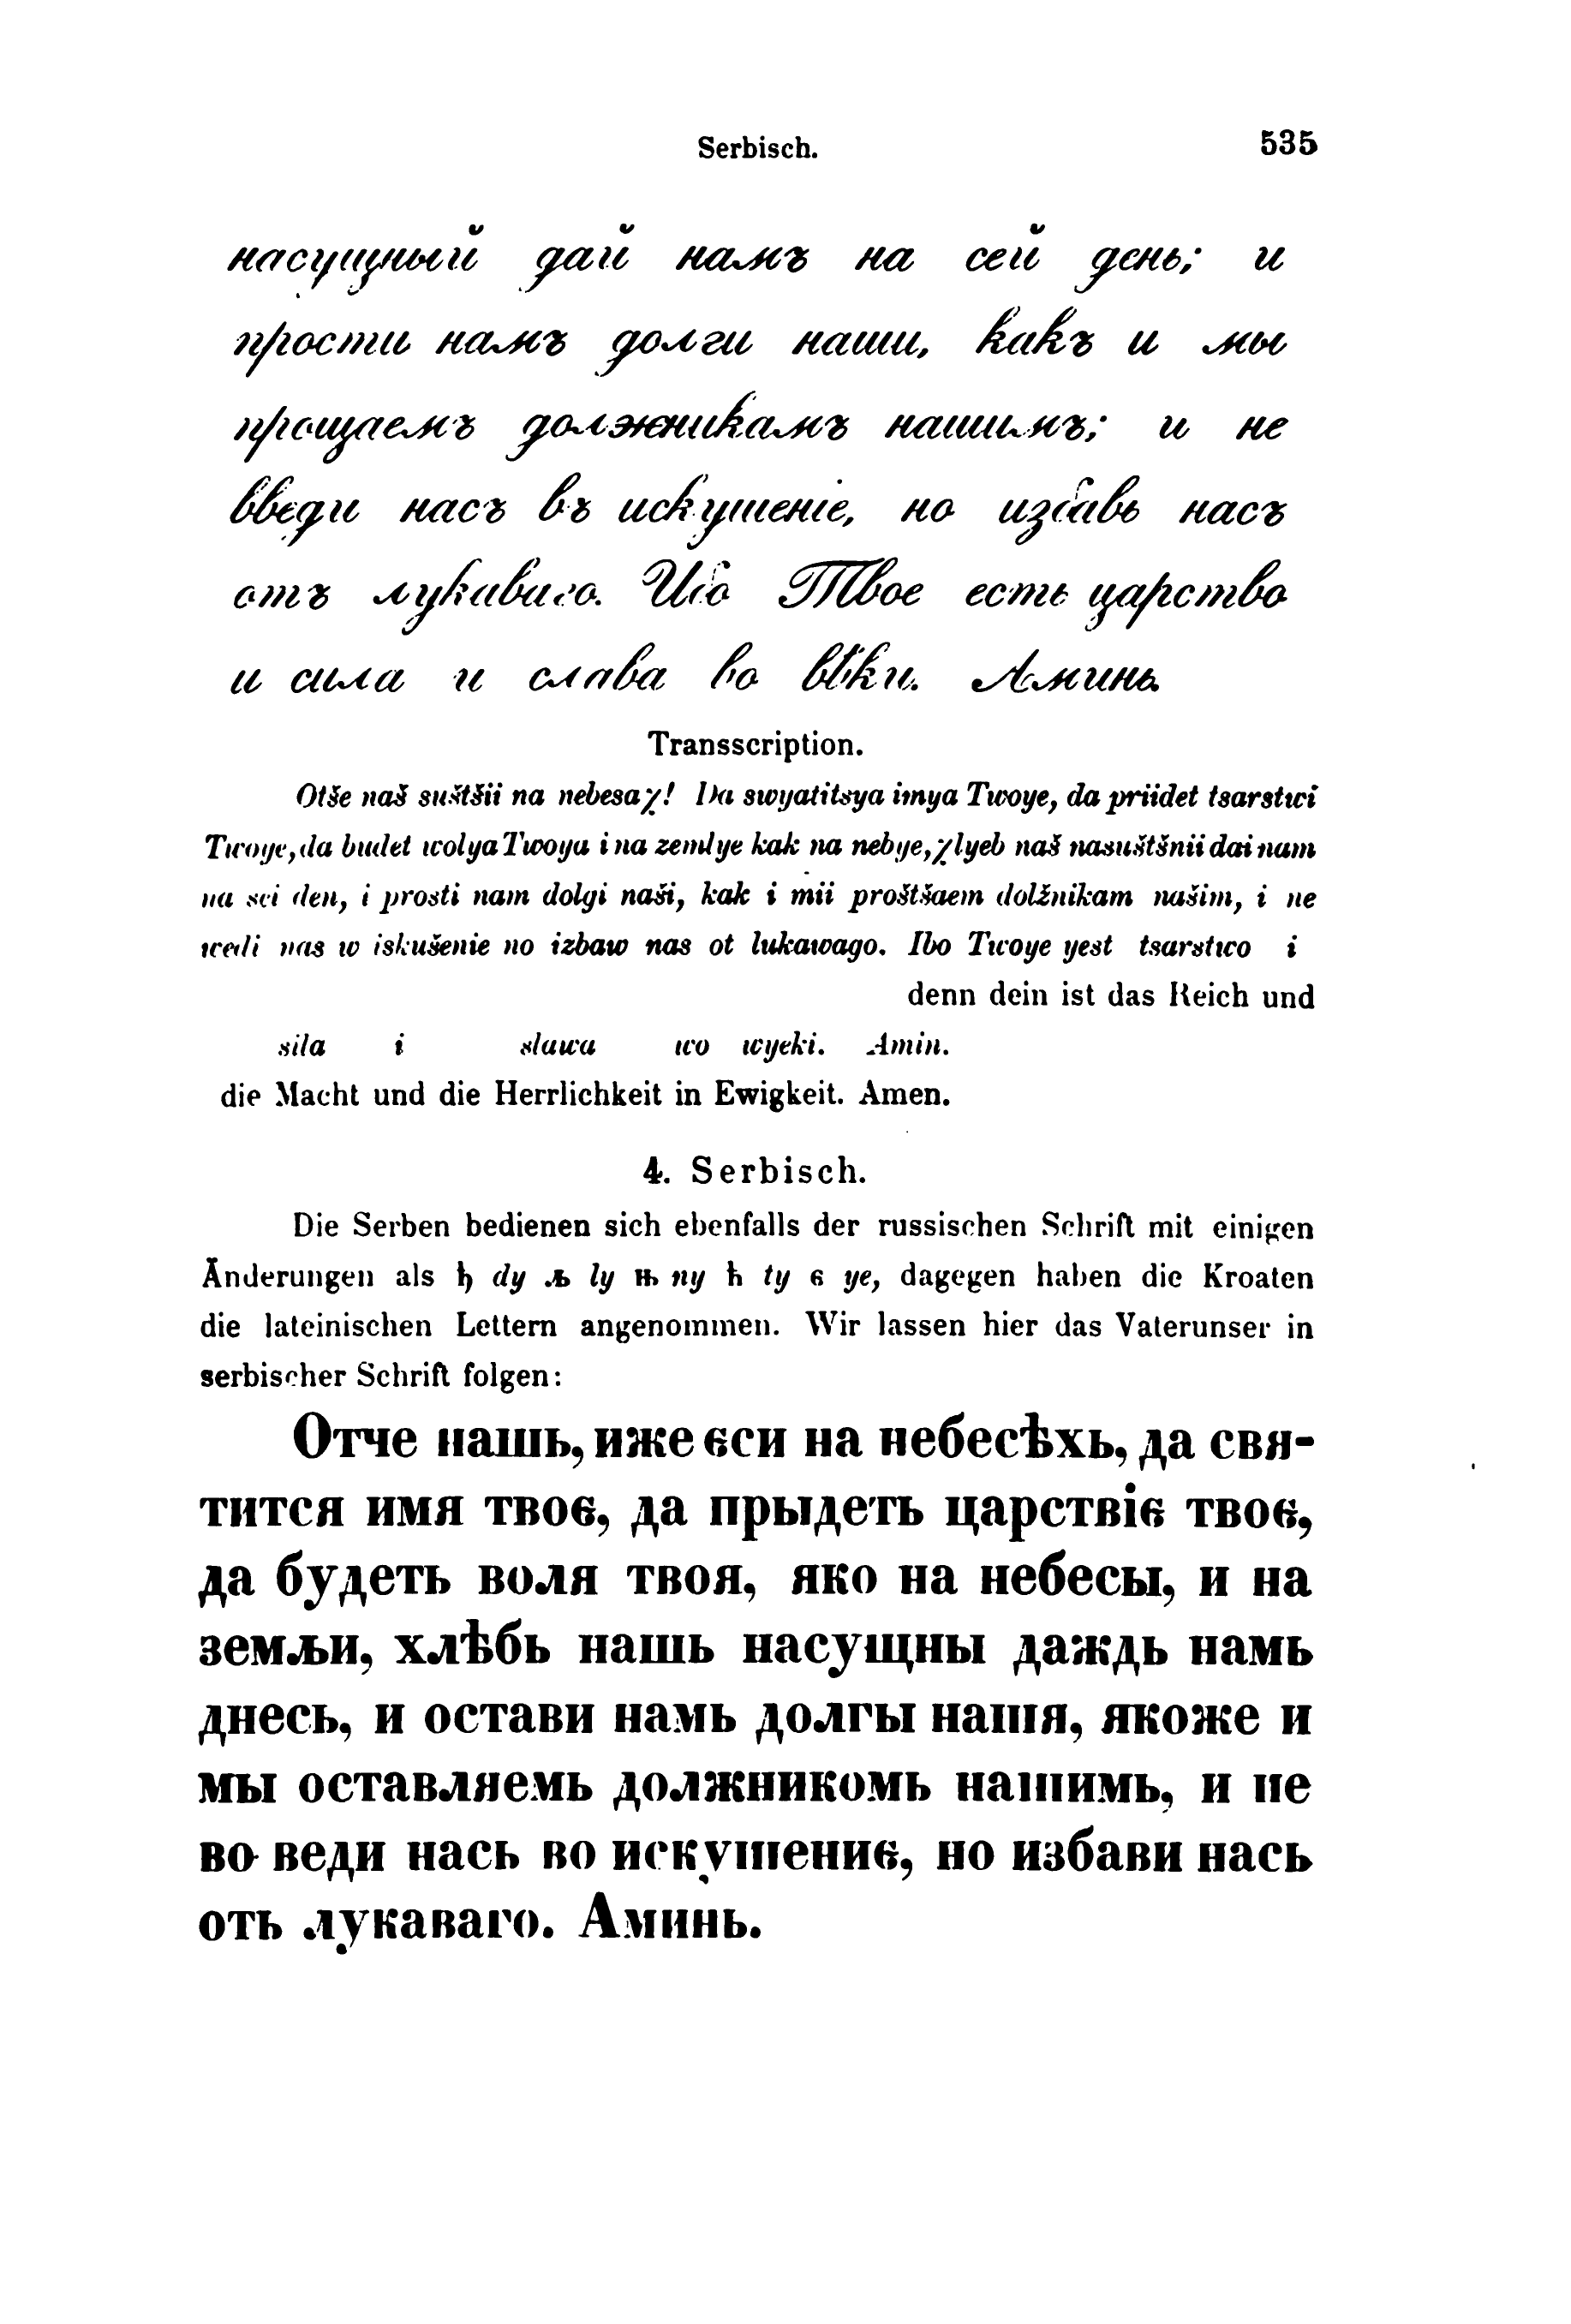 Serbisch. 535
насущный дай намъ на сей день; и
прости намъ долги наши, какъ и мы
прощаемъ должникамъ нашимъ; и не
введи насъ въ искушеніе, но избавь насъ
отъ лукаваго. Ибо Твое есть царство
и сила и слава во вѣки. Аминь.
Transscription.
Otše naš suštšii na nebesaχ! Da swyatitsya imya Twoye, da priidet tsarstwi
Twoye, da budet wolya Twoya i na zemlye kak na nebye, χlyeb naš nasuštšnii dai nam
na sei den, i prosti nam dolgi naši, kak i mii proštšaem dolžnikam našim, i ne
wedi nas w iskušenie no izbaw nas ot lukawago. Ibo Twoye yest tsarstwo i
denn dein ist das Reich und
sila i slawa wo wyeki. Amin.
die Macht und die Herrlichkeit in Ewigkeit. Amen.
4. Serbisch.
Die Serben bedienen sich ebenfalls der russischen Schrift mit einigen
Änderungen als ђ dy љ ly њ ny ћ ty є ye, dagegen haben die Kroaten
die lateinischen Lettern angenommen. Wir lassen hier das Vaterunser in
serbischer Schrift folgen:
Отче нашь, иже єси на небесѣхь, да свя-
тится имя твоє, да прыдеть царствіє твоє,
да будеть воля твоя, яко на небесы, и на
земљи, хлѣбь нашь насущны даждь намь
днесь, и остави намь долгы нашя, якоже и
мы оставляемь должникомь нашимь, и не
во веди нась во искушениє, но избави нась
оть лукаваго. Аминь.